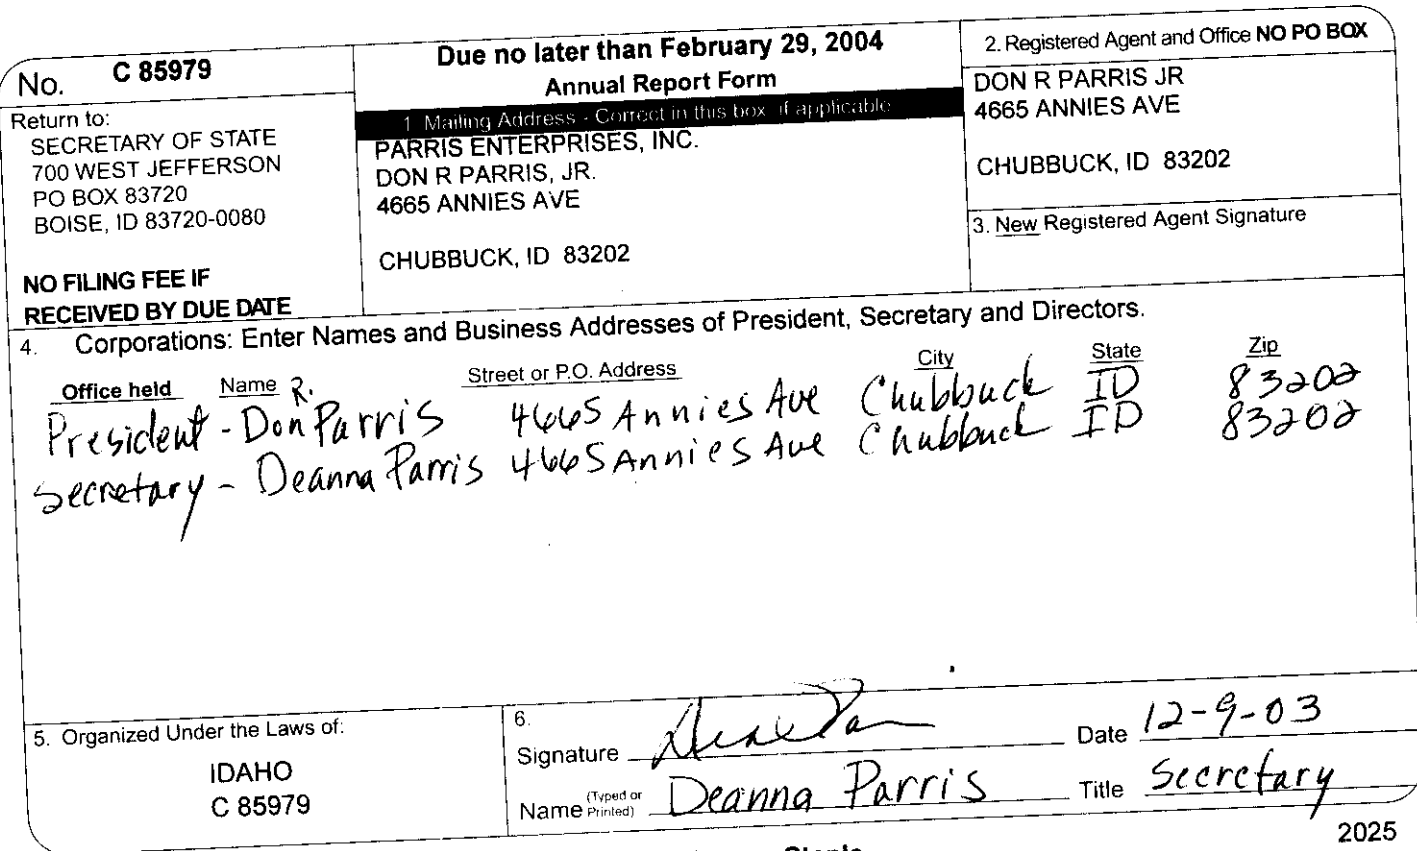 No. C 85979
Return to:
SECRETARY OF STATE
700 WEST JEFFERSON
PO BOX 83720
BOISE, ID 83720-0080
NO FILING FEE IF
RECEIVED BY DUE DATE
Due no later than February 29, 2004
Annual Report Form
1 Mailing Address - Correct in this box if applicable
PARRIS ENTERPRISES, INC.
DON R PARRIS, JR.
4665 ANNIES AVE
CHUBBUCK, ID 83202
2. Registered Agent and Office NO PO BOX
DON R PARRIS JR
4665 ANNIES AVE
CHUBBUCK, ID 83202
3. New Registered Agent Signature
4. Corporations: Enter Names and Business Addresses of President, Secretary and Directors.
Office held Name Street or P.O. Address City State Zip
President - Don R. Parris 4665 Annies Ave Chubbuck ID 83202
Secretary - Deanna Parris 4665 Annies Ave Chubbuck ID 83202
5. Organized Under the Laws of:
IDAHO
C 85979
6.
Signature Date 12-9-03
Name (Typed or Printed) Deanna Parris Title Secretary
2025